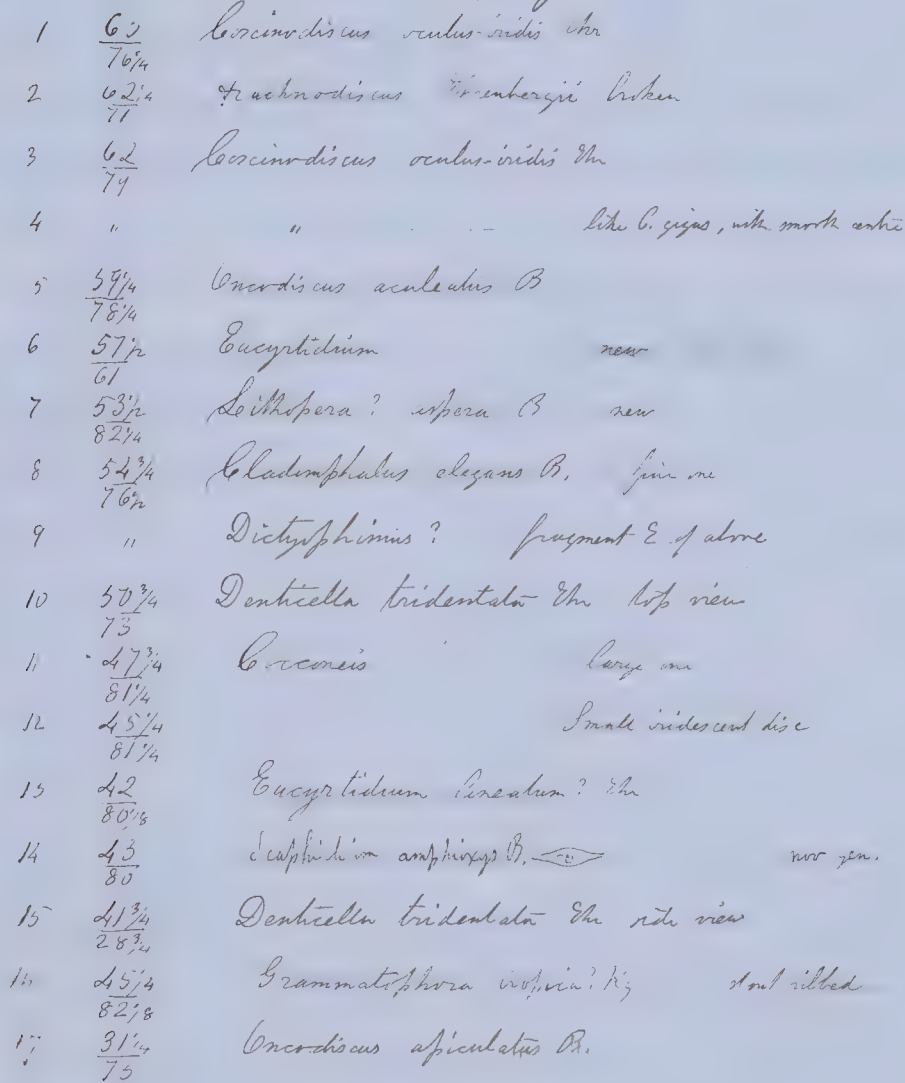 1 60/76 1/4 Coscinodiscus oculus-iridis Ehr
2 62 1/4/71 Arachnodiscus Ehrenbergii broken
3 62/79 Coscinodiscus oculus-iridis Ehr
4 " " like C. gigas, with smooth centre
5 59 1/4/78 1/4 Oncodiscus aculeatus B
6 57 1/2/61 Eucyrtidium new
7 53 1/2/82 1/4 Lithopera? B new
8 54 3/4/76 1/2 Cladomphalus elegans B. fine one
9 " Dictyophimus? fragment E of above
10 50 3/4/73 Denticella tridentata Ehr top view
11 47 3/4/81 1/4 Cocconeis large one
12 45 1/4/81 1/4 Small iridescent disc
13 42/80 1/8 Eucyrtidium lineatum? Ehr
14 43/80 Scaphidium amphioxys B. nov gen.
15 41 3/4/28 3/4 Denticella tridentata Ehr side view
16 45 1/4/82 1/8 Grammatophora Kg stout ribbed
17 31 1/4/75 Oncodiscus apiculatus B.